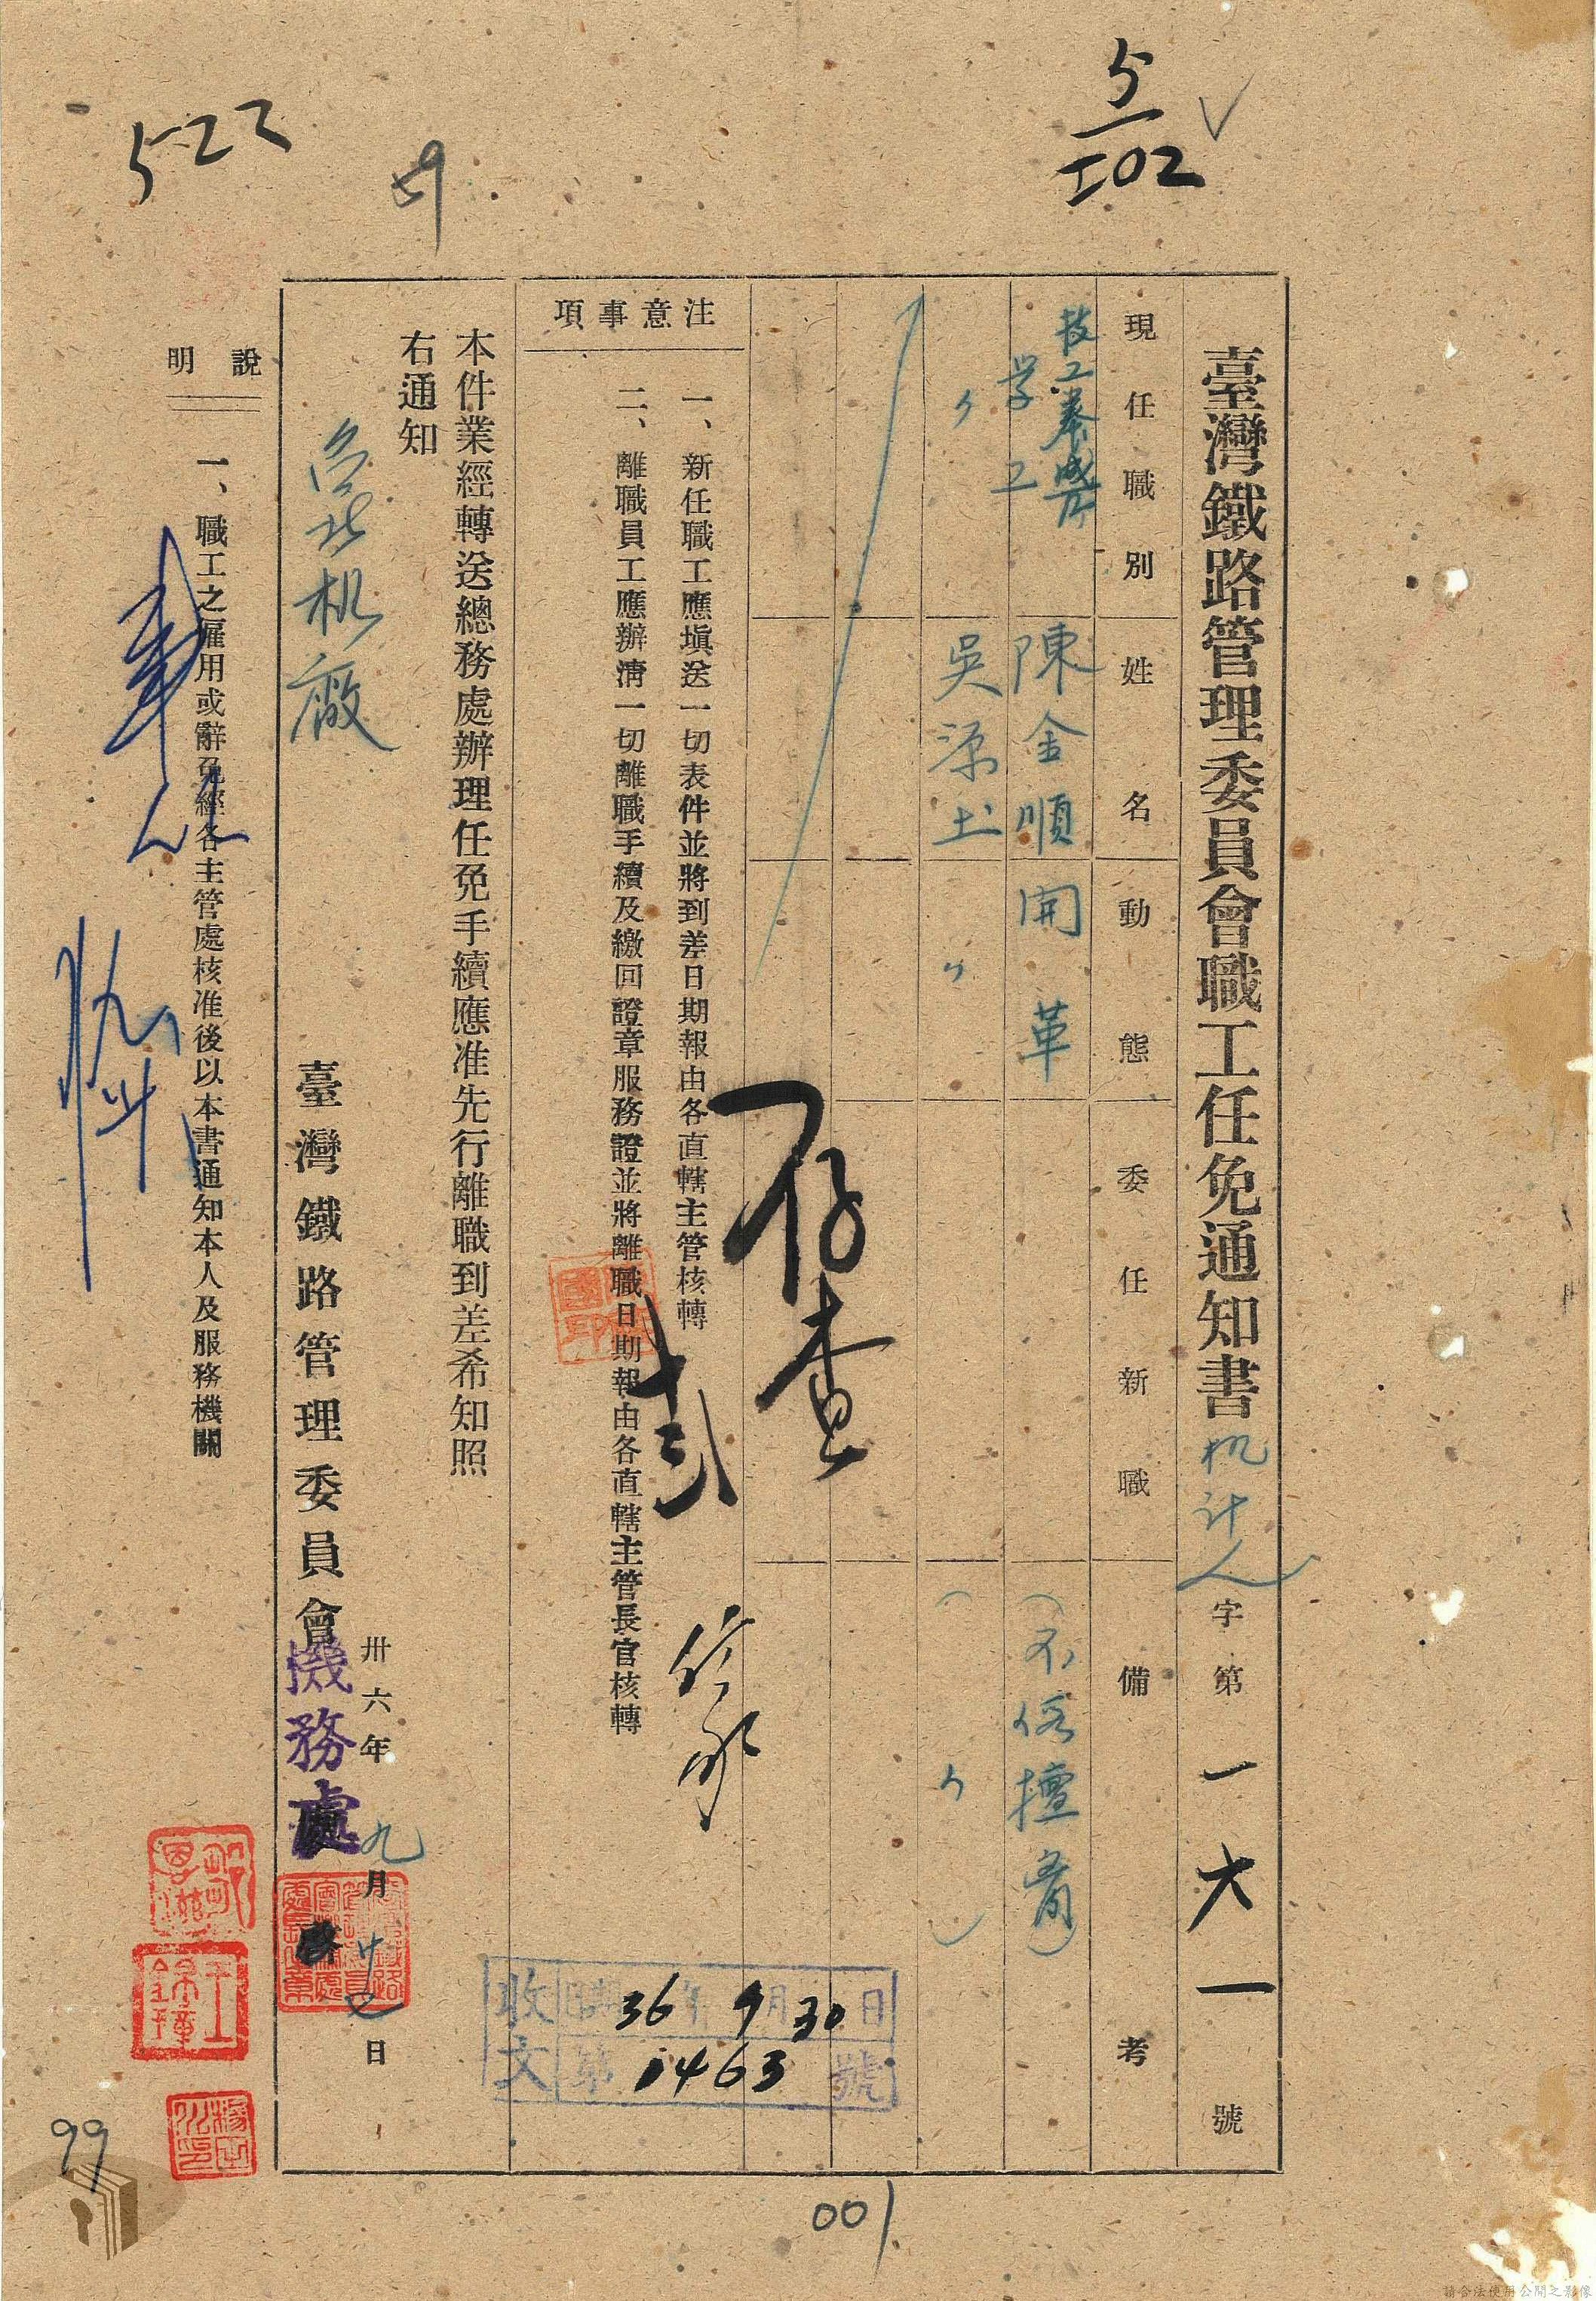 5
102
522
臺灣鐵路管理委員會職工任免通知書 机計人字第一六一號
現任職別 姓名 動態 委任新職 備考
技工養成所
学工 陳金順 開革 (不假擅离)
〃 吳源土 〃 ( 〃 )
注意事項
一、新任職工應塡送一切表件並將到差日期報由各直轄主管核轉
二、離職員工應辦淸一切離職手續及繳回證章服務證並將離職日期報由各直轄主管長官核轉
存查
本件業經轉送總務處辦理任免手續應准先行離職到差希知照
右通知
台北机廠
臺灣鐵路管理委員會機務處
卅六年九月廿七日
說明
一、職工之雇用或辭免經各主管處核准後以本書通知本人及服務機關
收文
日期 36年9月30日
第1463號
王錦璋
99
001
請合法使用公開之影像